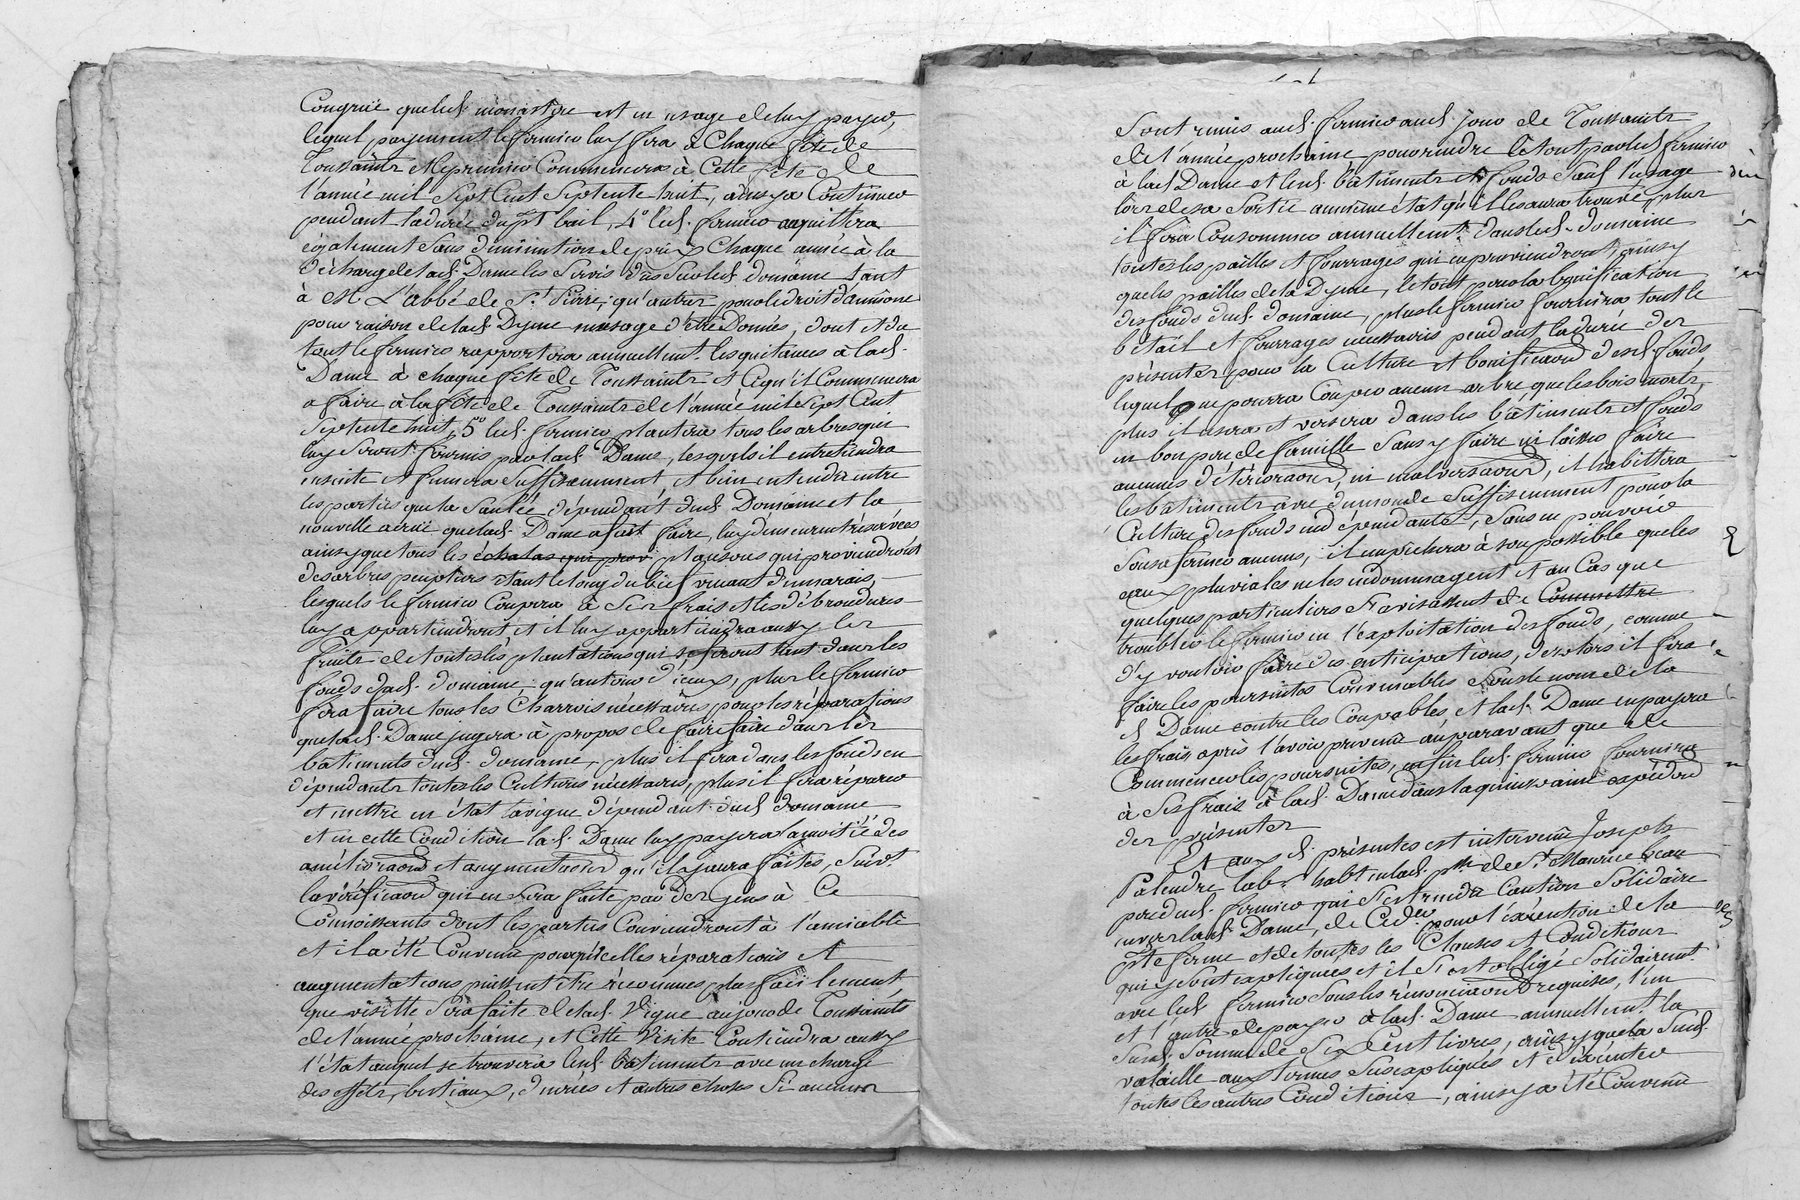 Congrue quelad. monastere est en usage de luy payer,
lequel payement le fermier luy fera à Chaque fête de
Toussaints & le premier Commencera à Cette fête de
l'année mil Sept Cent Septente huit, ainsy a Continuer
pendant la durée du pt. bail, 4.° led. fermier aquittera
également Sans diminution de prix Chaque année à la
décharge de lad. Dame les Servis dus Sur led. domaine tant
à M. L'abbé de St. Pierre, qu'autres, pour le droit d'aumône
pour raison de lad. Dyme en usage d'être Donnés, dont & du
tout le fermier rapportera annuellemt. les quitances à lad.
Dame à chaque fête de Toussaints & Ce qu'il Commencera
a faire à la fête de Toussaints de l'année mil Sept Cent
Septente huit, 5.° led. fermier plantera tous les arbres qui
luy Seront fournis par lad. Dame, lesquels il entretiendra
ensuite & fumera Suffisemment, & bien entendu entre
les parties que la Saulée dépendant dud. Domaine et la
nouvelle que lad. Dame a fait faire, luy demeurent réservées
ainsy que tous les échalas qui prov. plansons qui proviendront
des arbres peupliers étant le long du bief venant du marais,
lesquels le fermier Coupera à Ses frais & les débrondures
luy appartiendront et il luy appartiendra aussy les
fruits de toutes les plantations qui se feront tant dans les
fonds dud. domaine qu'autour d'iceux, plus le fermier
fera faire tous les Charrois nécessaires pour les réparations
que lad. Dame jugera à propos de faire faire dans les
bâtiments dud. domaine, plus il fera dans les fonds en
dépendants toutes les Cultures nécessaires, plus il fera réparer
et mettre en état la vigne dépendant dud. domaine
et en cette Condition lad. Dame luy payera la moitié des
améliorãons et augmentãons qu'il y aura faites, Suivt.
la vérificãon qui en Sera faite par des gens à Ce
Connoissants dont les parties Conviendront à l'amiable
et il a été Convenu pour qu'icelles réparations et
augmentations puissent être réconnues plus facilement,
que visitte Sera faite de lad. Vigne au jour de Toussaints
de l'année prochaine, et Cette Visite Contiendra aussy
l'état auquel se trouvera lesd. bâtiments avec un chargé
des effets, bestiaux, denrées et autres choses Si aucunes
Sont remis aud. fermier aud. jour de Toussaints
de l'année prochaine pour rendre le tout par led. fermier
à lad. Dame et lesd. bâtiments et fonds Sauf l'usage
lors de sa Sortie au même état qu'il les aura trouvé, plus
il fera Consommer annuellemt. dans led. domaine
toutes les pailles & fourrages qui en proviendront ainsy
que les pailles de la Dyme, le tout pour la bonification
des fonds dud. domaine, plus le fermier fournira tout le
bétail et fourrages nécessaires pendant la durée des
présentes pour la Culture et bonificãon desd. fonds,
lequel ne pourra Couper aucun arbre que les bois morts,
plus il usera et versera dans les bâtiments et fonds
en bon père de famille Sans y faire ni laisser faire
aucunes déteriorãons, ni malversãons, il habittera
les bâtiments avec du monde Suffisemment pour la
Culture des fonds en dépendants, Sans en pouvoir
Sousaffermer aucuns, il empêchera à son possible que les
eaux pluviales ne les endommagent et au Cas que
quelques particuliers S'avisassent de Commettre
troubler le fermier en l'exploitation des fonds, comme
d'y vouloir faire des enticipations, des alors il fera
faire les poursuites Convenables Sous le nom de la
d. Dame contre les Coupables, et lad. Dame en payera
les frais après l'avoir prevenu auparavant que de
Commencer les poursuites, enfin led. fermier fournira
à Ses frais à lad. Dame dans la quinzaine expédõn
des présentes
Et aux d. présentes est intervenu Joseph
Palendre lab.r habt. en lad. psse. de St. Maurice beau
pere dud. fermier qui S'est rendu Caution Solidaire
envers lad. Dame, de Ced.er pour l'exécution de la
pte. ferme et de toutes les Clauses et Conditions
qui y Sont expliquées et il S'est obligé Solidairemt.
avec led. fermier Sous les rénonciãons requises, l'un
et l'autre de payer à lad. Dame annuellemt. la
Susd. Somme de Six Cent livres, ainsy que la Susd.
volaille aux termes Susexpliqués et d'exécuter
toutes les autres Conditions, ainsy a été Convenu